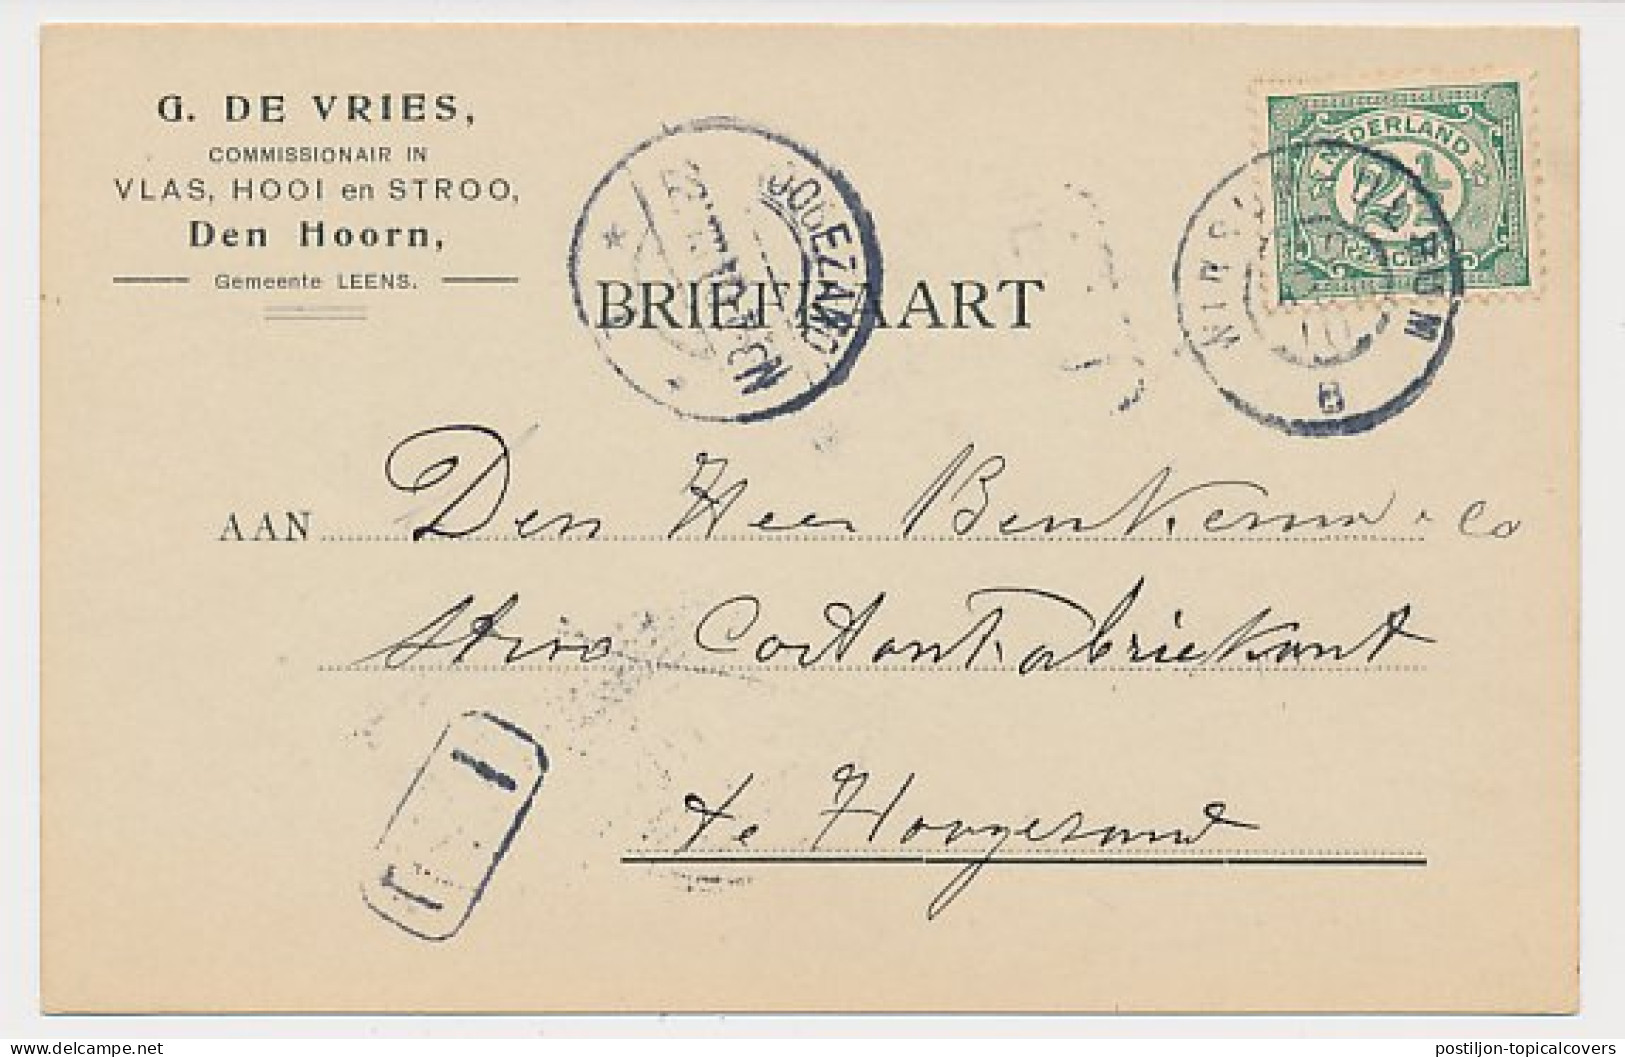 G. DE VRIES,
COMMISSIONAIR IN
VLAS, HOOI en STROO,
Den Hoorn,
Gemeente LEENS.
NEDERLAND
2½
CENT
BRIEFKAART
AAN Den Heer Benkema & Co
Stroo Cartonfabriekant
te Hoogezand
delcampe.net
postiljon-topicalcovers